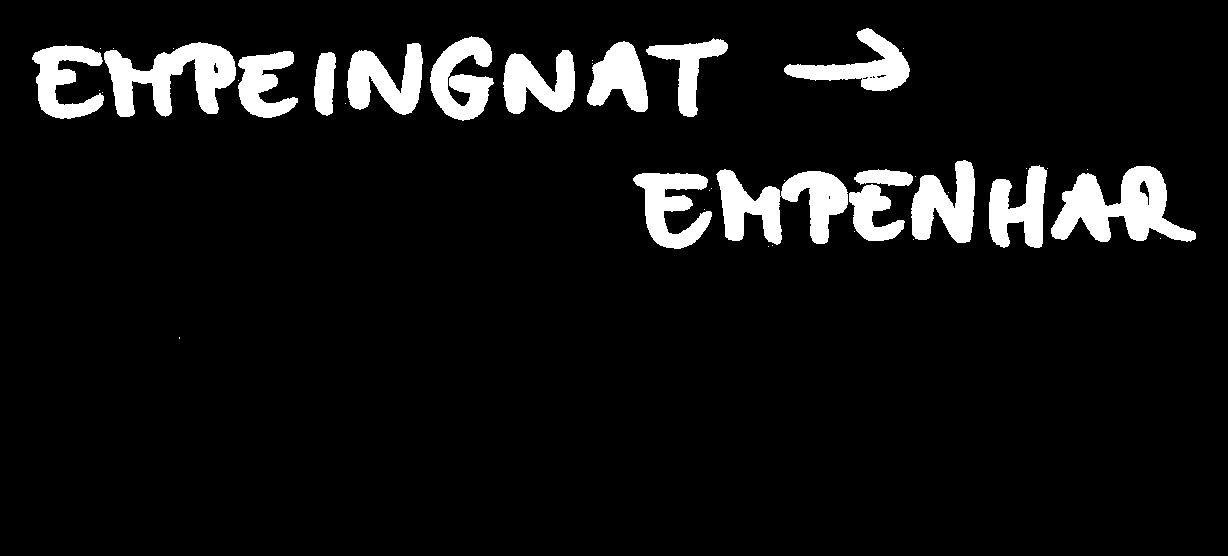 EMPEINGNAT →
EMPENHAR